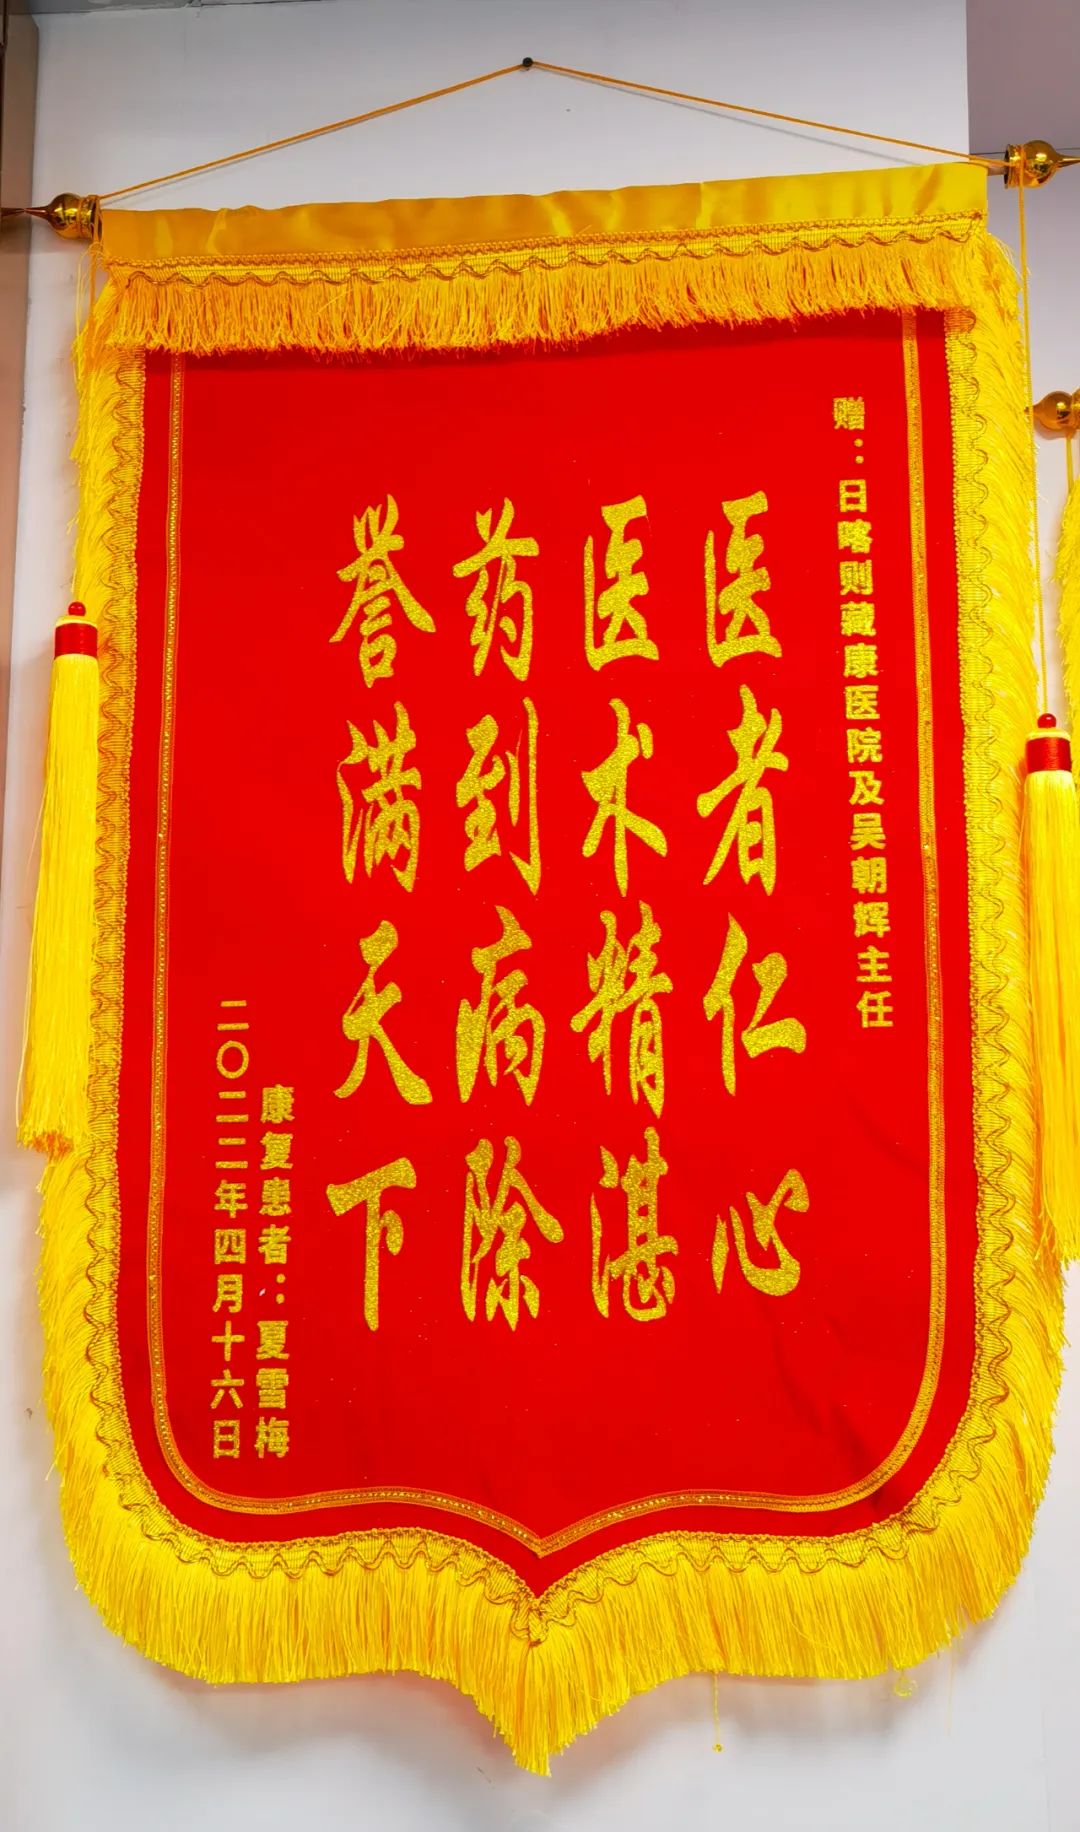 赠：日喀则藏康医院及吴朝辉主任
医者仁心
医术精湛
药到病除
誉满天下
康复患者：夏雪梅
二〇二二年四月十六日